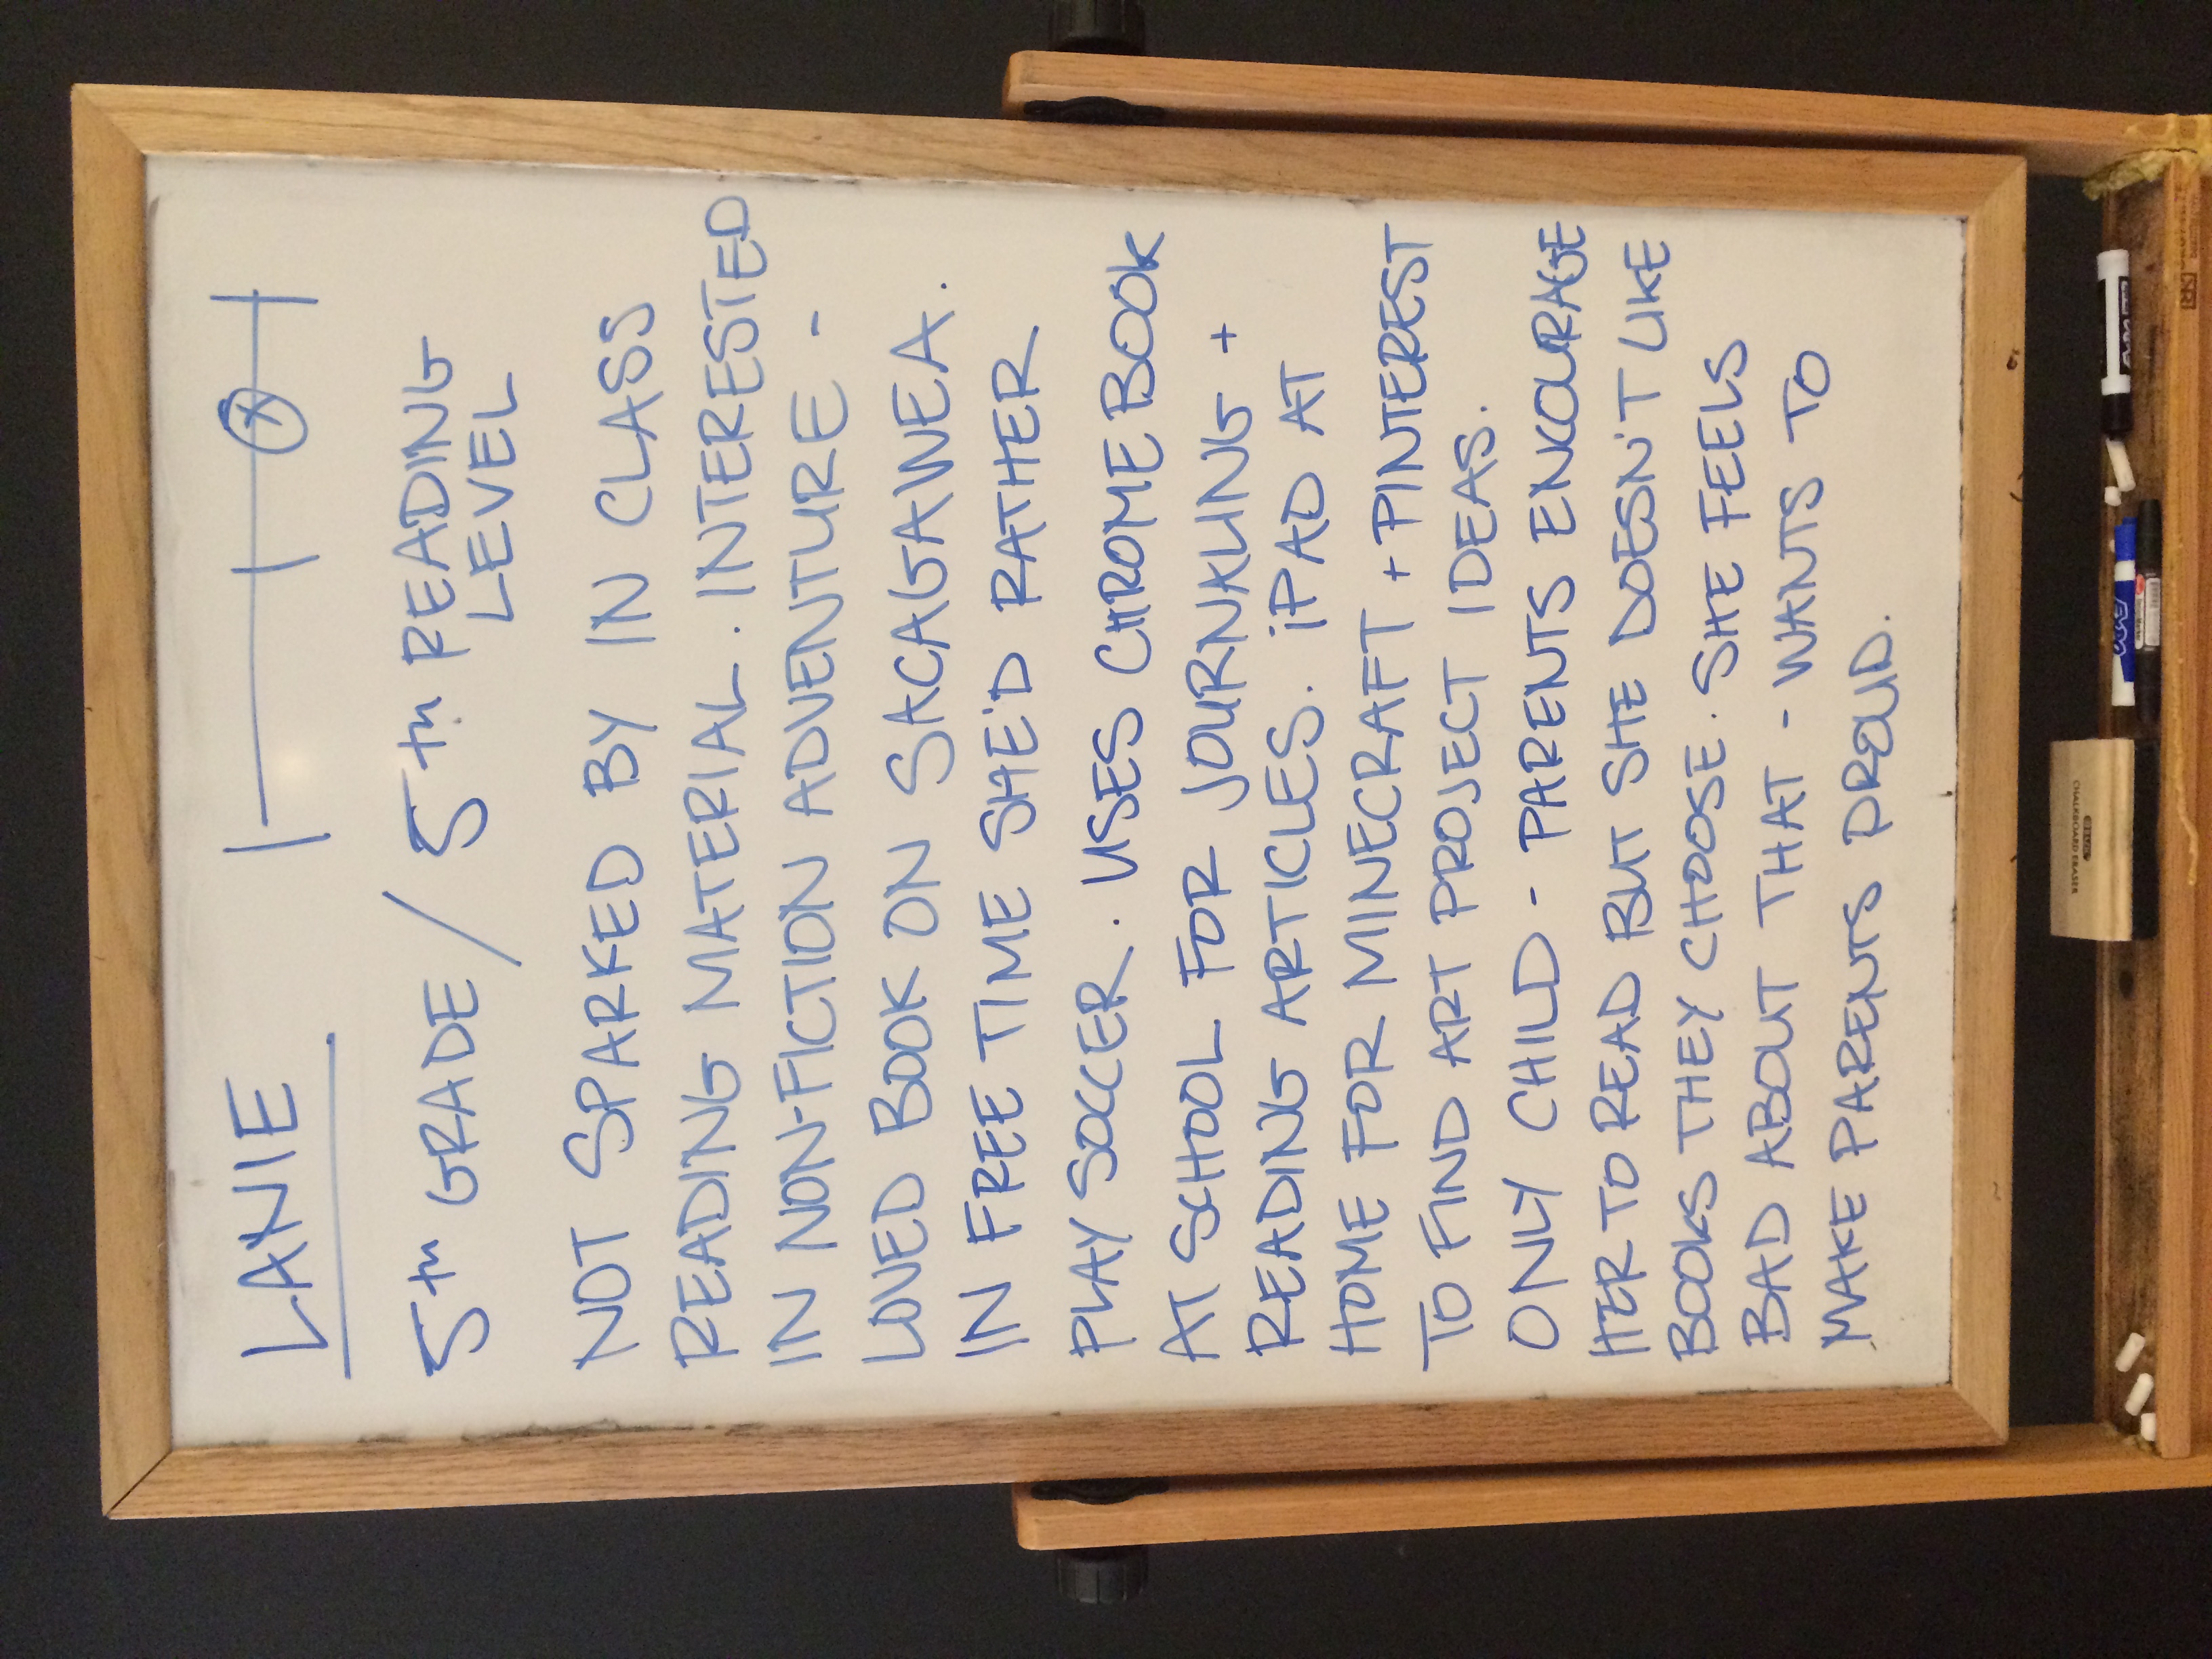 LANIE
5th GRADE / 5th READING
LEVEL
NOT SPARKED BY IN CLASS
READING MATERIAL. INTERESTED
IN NON-FICTION ADVENTURE -
LOVED BOOK ON SACAGAWEA.
IN FREE TIME SHE'D RATHER
PLAY SOCCER. USES CHROMEBOOK
AT SCHOOL FOR JOURNALING +
READING ARTICLES. iPAD AT
HOME FOR MINECRAFT + PINTEREST
TO FIND ART PROJECT IDEAS.
ONLY CHILD - PARENTS ENCOURAGE
HER TO READ BUT SHE DOESN'T LIKE
BOOKS THEY CHOOSE. SHE FEELS
BAD ABOUT THAT - WANTS TO
MAKE PARENTS PROUD.
CHALKBOARD ERASER
EXPO